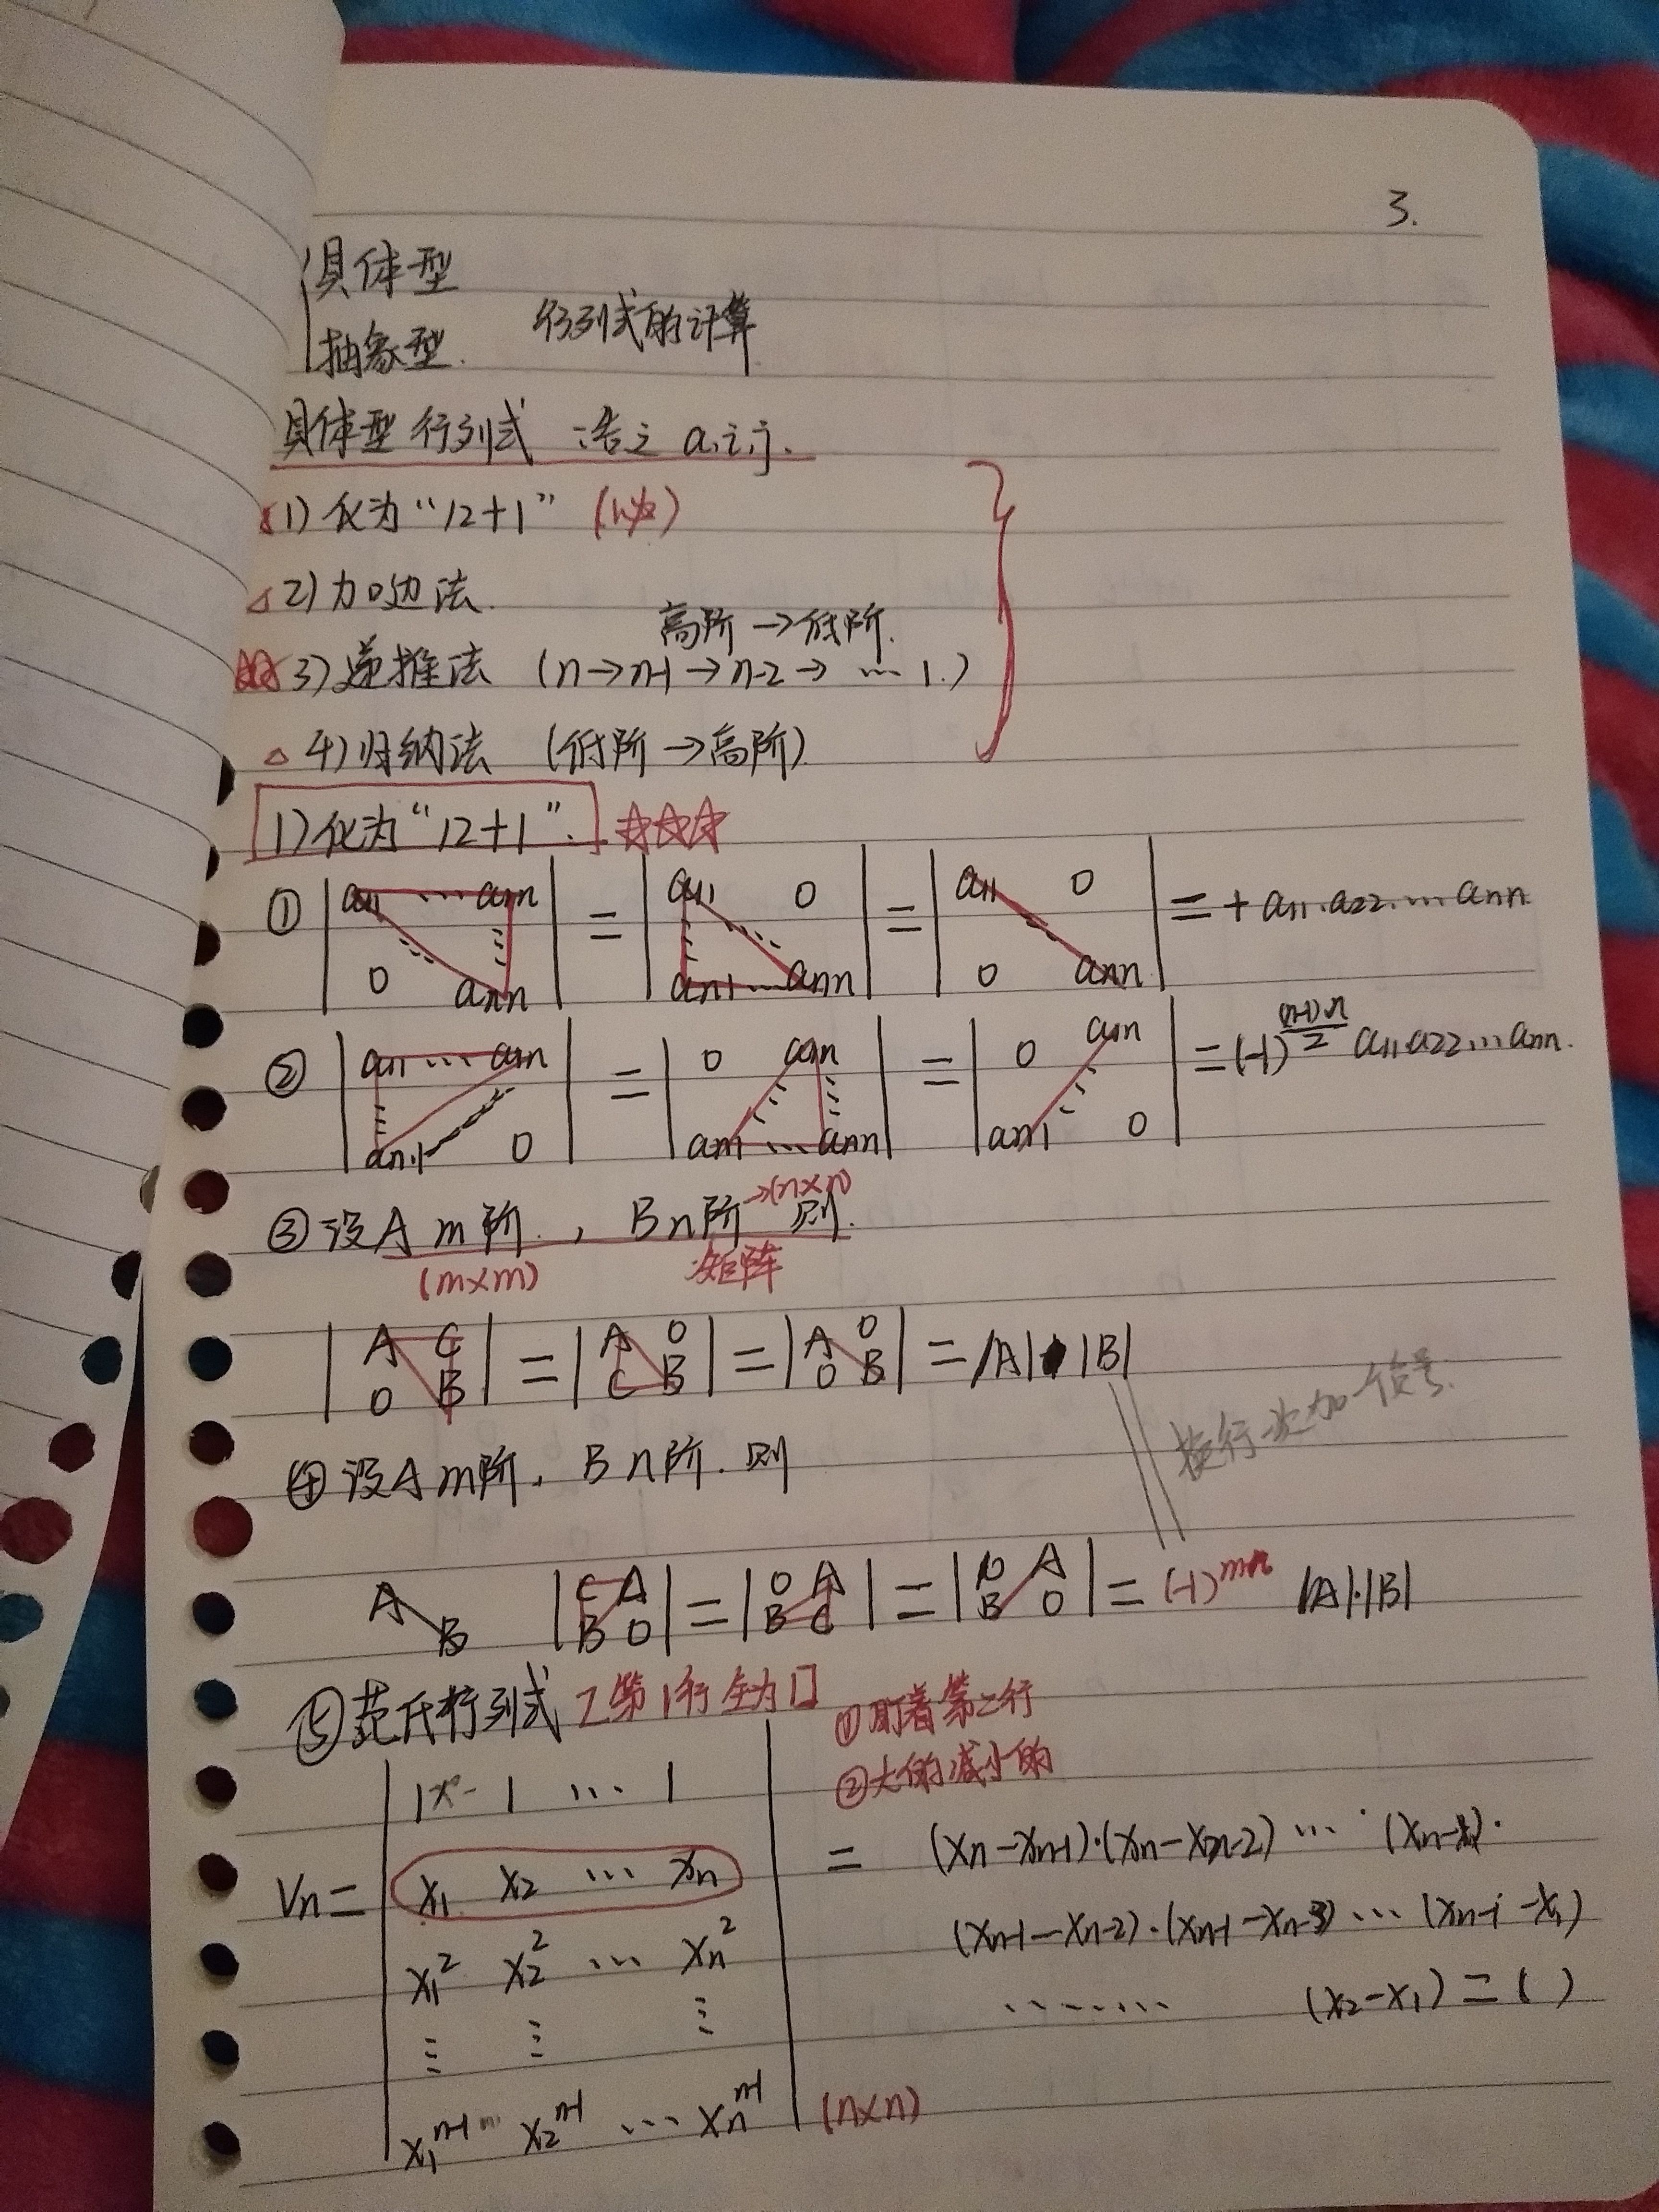 3.
具体型
抽象型. 行列式的计算
具体型行列式 :告之 a,i,j.
(1) 化为“12+1”
△2) 加边法.
高阶→低阶.
3) 递推法 (n→n-1→n-2→ … 1.)
△ 4) 归纳法 (低阶→高阶)
1) 化为“12+1”. ☆☆☆
① |a11 … a1n; 0 ann| = |a11 0; an1 … ann| = |a11 0; 0 ann| = + a11.a22.… ann
② |a11 … a1n; an1 0| = |0 a1n; an1 … ann| = |0 a1n; an1 0| = (-1)^((n-1)n/2) a11.a22…ann.
③ 设A m阶., B n阶→(n×n) 则.
(m×m) 矩阵
|A C; 0 B| = |A 0; C B| = |A 0; 0 B| = |A|·|B|
换行一次加一个负号.
④ 设A m阶, B n阶. 则
A B |C A; B 0| = |0 A; B C| = |0 A; B 0| = (-1)^mn |A|·|B|
⑤ 范氏行列式 第1行全为1
① 盯着第二行
② 大的减小的
1 1 … 1
Vn = x1 x2 … xn = (xn-xn-1)·(xn-xn-2) … (xn-x1)·
x1^2 x2^2 … xn^2 (xn-1-xn-2)·(xn-1-xn-3) … (xn-1-x1)
⋮ ⋮ ⋮ ········ (x2-x1) = ( )
x1^n-1 x2^n-1 … xn^n-1 (n×n)